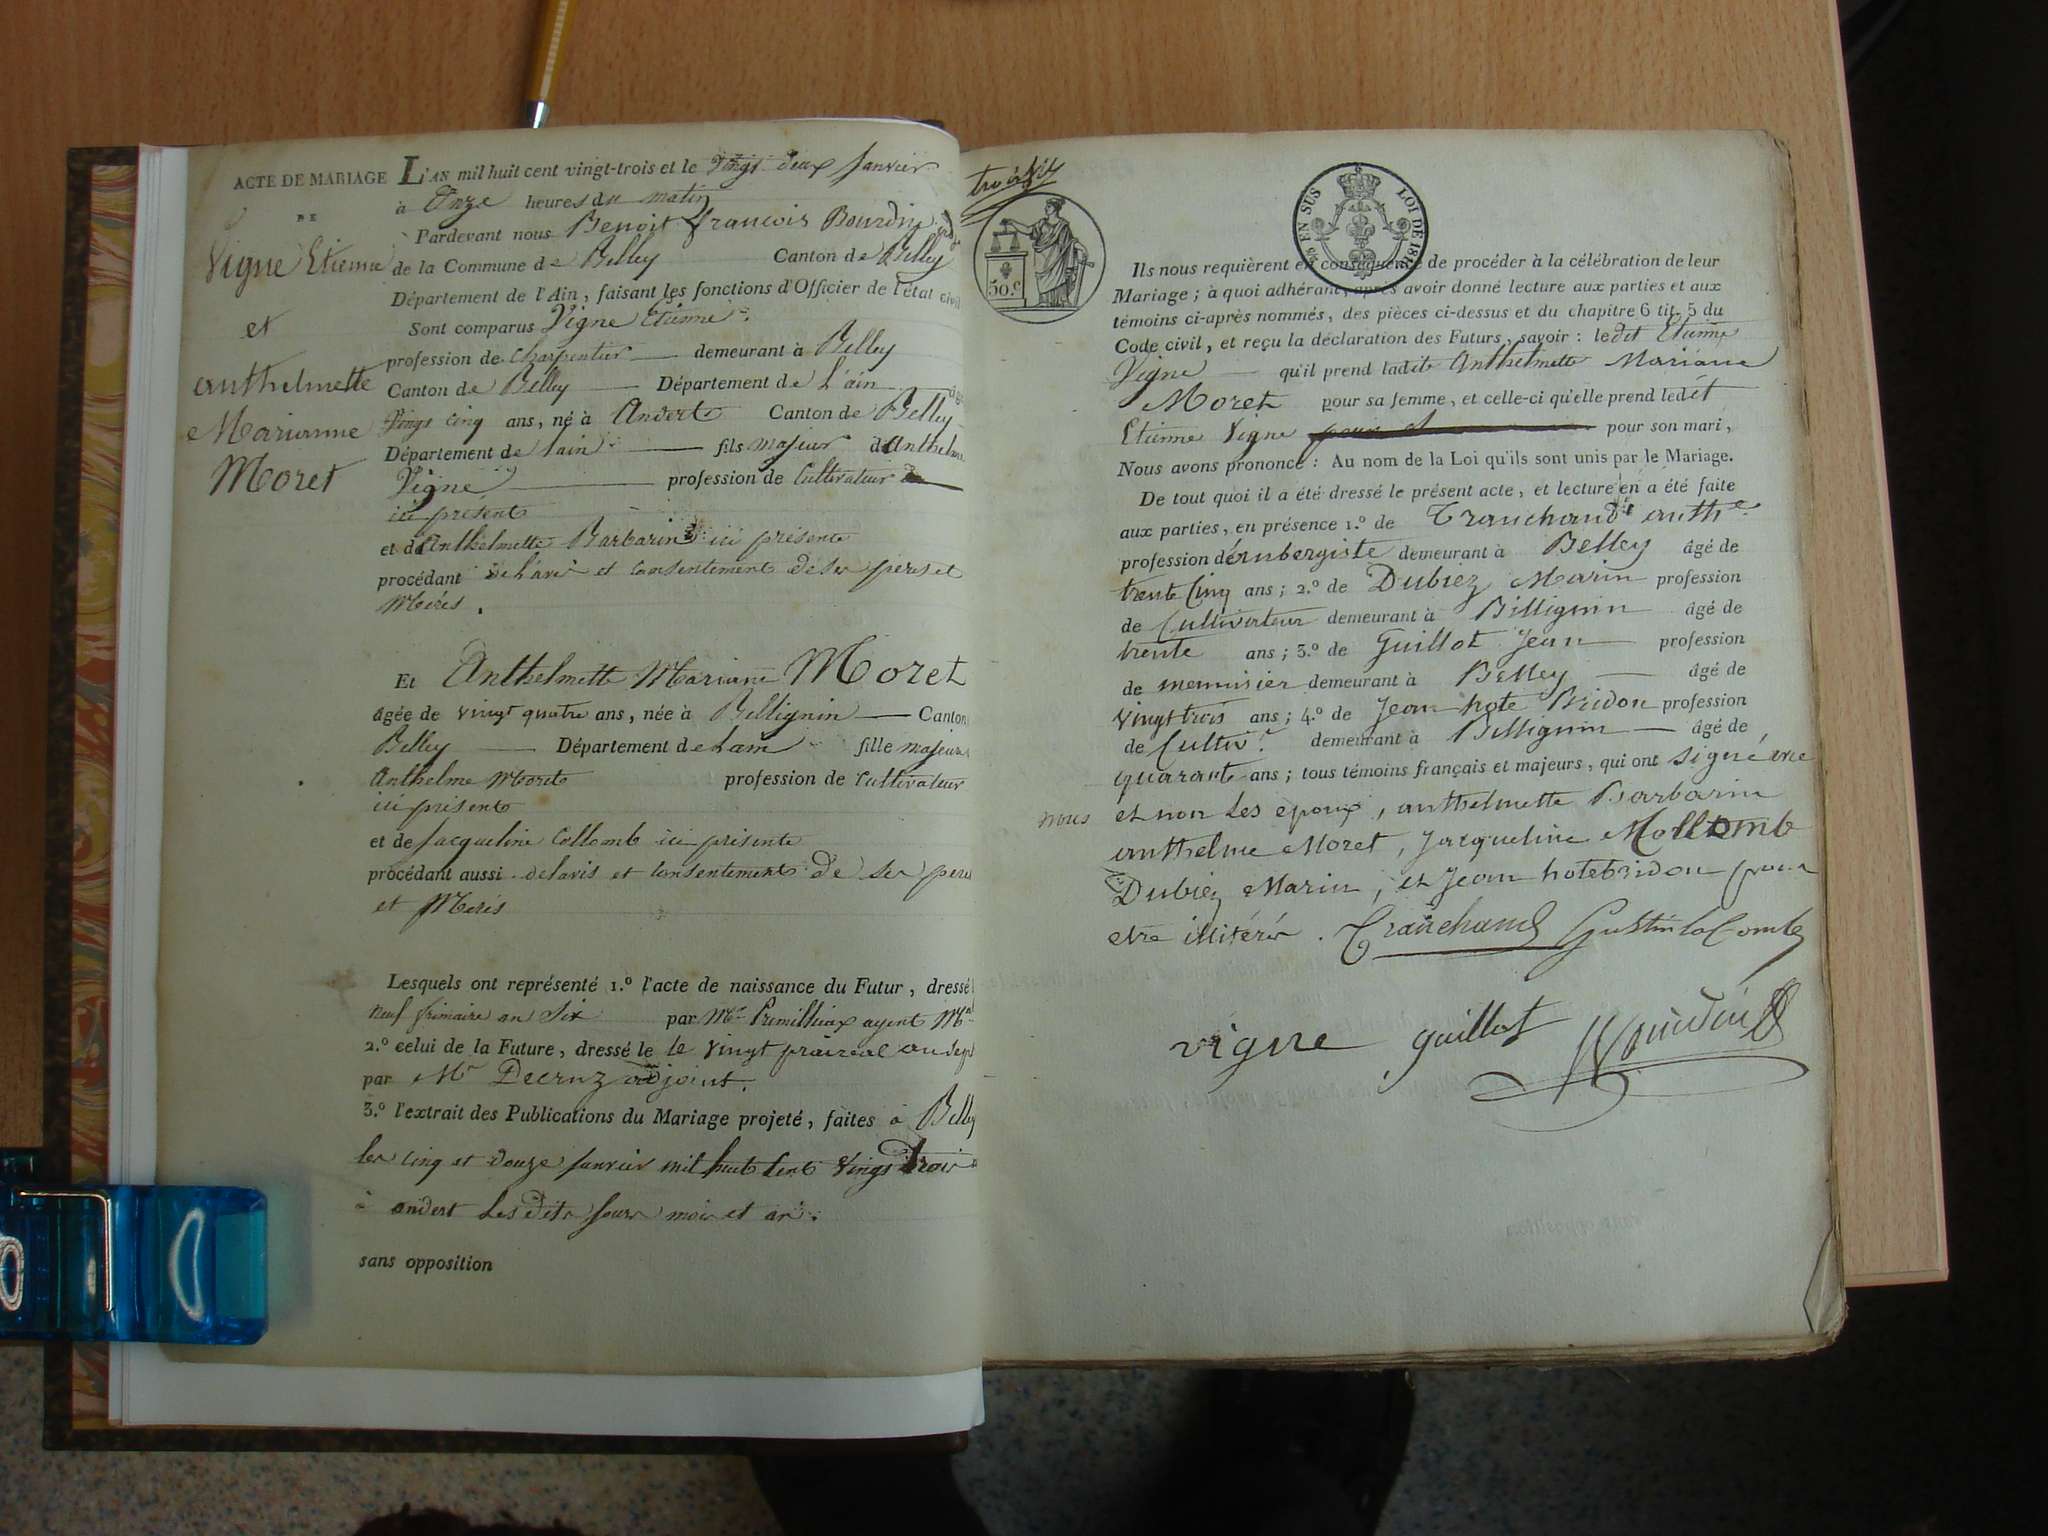 ACTE DE MARIAGE
DE
Vigne Etienne
et
anthelmette
Marianne
Moret
L'AN mil huit cent vingt-trois et le vingt deux Janvier
à Onze heures du matin
Pardevant nous Benoit francois Bourdin
de la Commune de Belley Canton de Belley
Département de l'Ain, faisant les fonctions d'Officier de l'état civil
Sont comparus Vigne Etienne
profession de charpentier demeurant à Belley
Canton de Belley Département de L'ain
vingt cinq ans, né à Andert Canton de Belley
Département de Lain fils majeur d'Anthelme
Vigne profession de Cultivateur
ici présent
et d'Anthelmette Barbarin ici présente
procédant de L'avis et consentement de ses peres et
Meres.
Et Anthelmette Mariane Moret
âgée de vingt quatre ans, née à Bellignin Canton
Belley Département de Lain fille majeure
Anthelme Moret profession de cultivateur
ici présent
et de Jacqueline Collomb ici présente
procédant aussi de lavis et consentement de ses pere
et Meres
Lesquels ont représenté 1.º l'acte de naissance du Futur, dressé
neuf frimaire an Six par Mr Premillieux agent
2.º celui de la Future, dressé le le vingt prairéal an sept
par Mr Decruz adjoint.
3.º l'extrait des Publications du Mariage projeté, faites à Belley
les cinq et douze Janvier mil huit Cent vingt trois
à andert Les dits jours mois et an.
sans opposition
50.c
EN SUS LOI DE 1816
Ils nous requièrent en conséquence de procéder à la célébration de leur
Mariage; à quoi adhérant, après avoir donné lecture aux parties et aux
témoins ci-après nommés, des pièces ci-dessus et du chapitre 6 tit. 5 du
Code civil, et reçu la déclaration des Futurs, savoir : le dit Etienne
Vigne qu'il prend ladite Anthelmette Mariane
Moret pour sa femme, et celle-ci qu'elle prend ledit
Etienne Vigne pour son mari,
Nous avons prononcé : Au nom de la Loi qu'ils sont unis par le Mariage.
De tout quoi il a été dressé le présent acte, et lecture en a été faite
aux parties, en présence 1.º de Tranchand anthe
profession d'érubergiste demeurant à Belley âgé de
trente Cinq ans; 2.º de Dubiez Marin profession
de Cultivateur demeurant à Billignin âgé de
trente ans; 3.º de Guillot Jean profession
de menuisier demeurant à Belley âgé de
vingt trois ans; 4.º de Jean hote Bridon profession
de Cultivr demeurant à Billignin âgé de
quarante ans; tous témoins français et majeurs, qui ont signé avec
nous et non Les epoux, anthelmette Barbarin
anthelme Moret, Jacqueline Mollomb
Dubiez Marin, et Jean hotebridon pour
etre illitérés. Tranchand
vigne guillot Bourdin